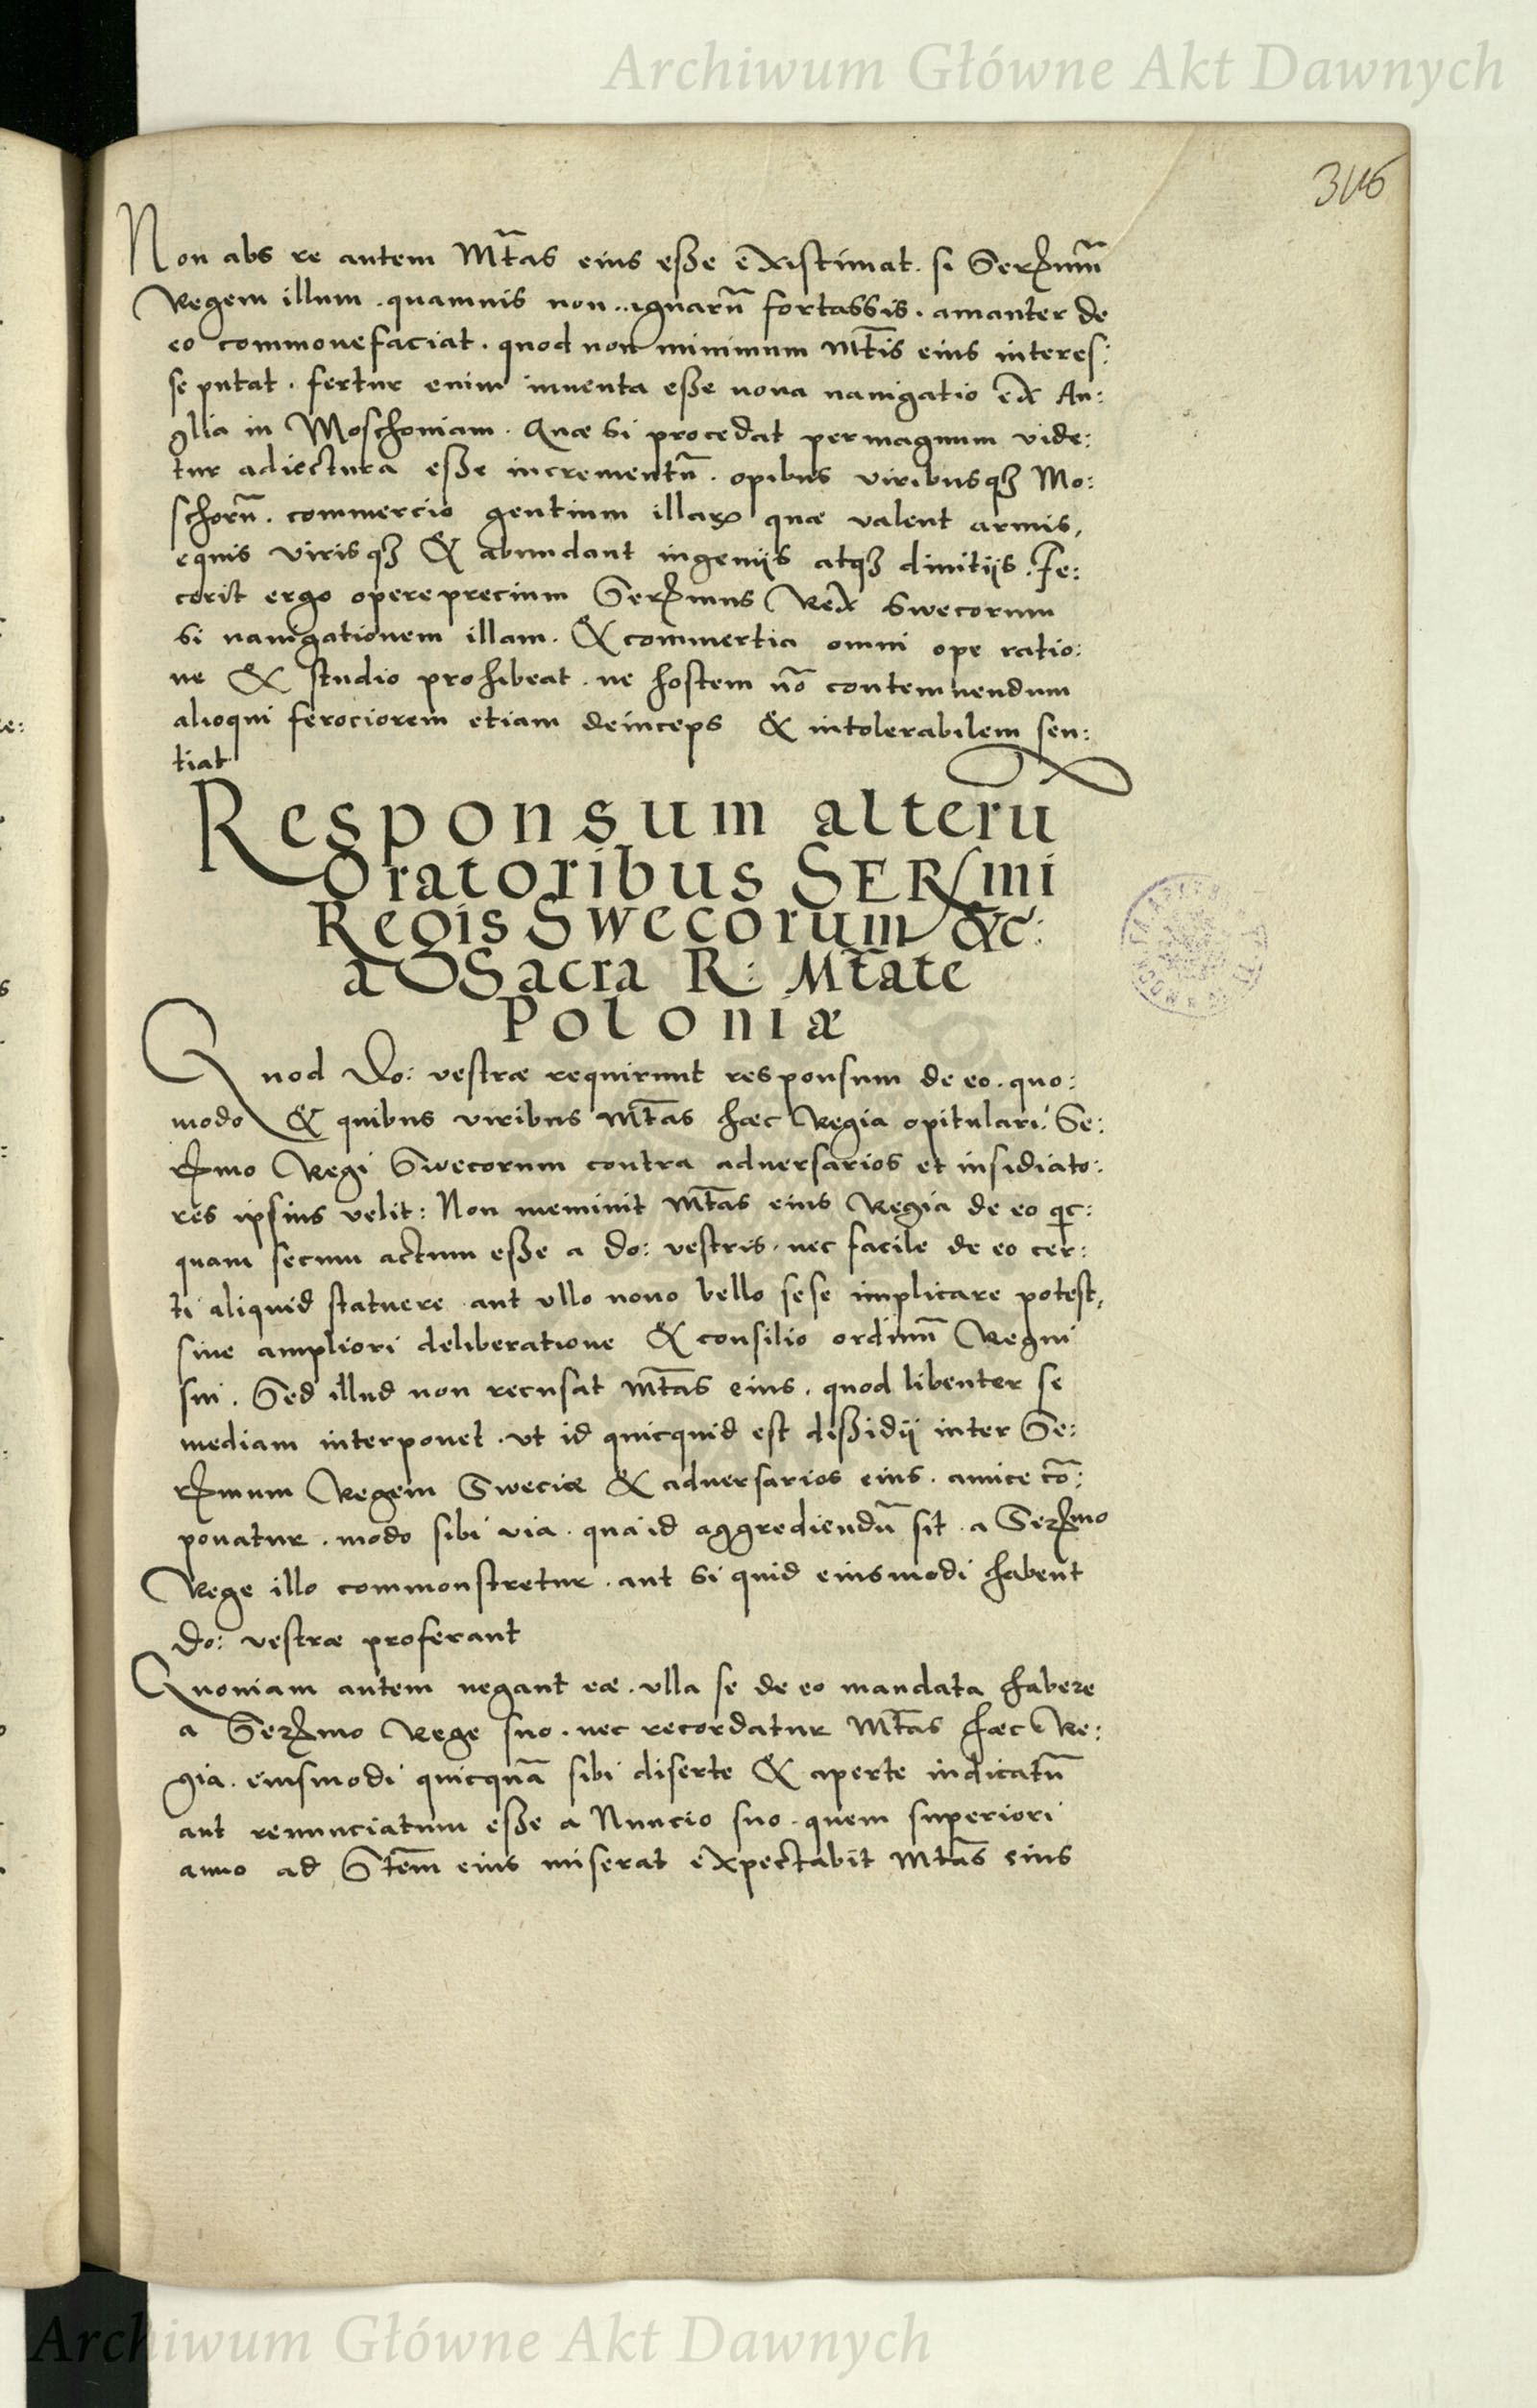 Archiwum Główne Akt Dawnych
346
Non abs re autem Mt̃as eius eße existimat. si Serᵐᵘᵐ̃
Regem illum. quamuis non..ignarũ fortassis. amanter de
eo commonefaciat. quod non minimum Mt̃is eius interes:
se putat. fertur enim inuenta eße noua nauigatio ex An:
glia in Moschouiam. Quæ si procedat permagnum vide:
tur adiectura eße incrementũ. opibus viribusqȝ Mo:
schorũ. commercio gentium illaꝝ quæ valent armis,
equis virisqȝ & abundant ingenijs atqȝ diuitijs. Fe:
cerit ergo opereprecium Serᵐᵘˢ Rex Swecorum
si nauigationem illam. & commertia omni ope ratio:
ne & studio prohibeat. ne hostem nõ contemnendum
alioqui ferociorem etiam deinceps & intolerabilem sen:
tiat
Responsum alterũ
Oratoribus SERmi
Regis Swecorum &c:
a Sacra R: Mt̃ate
Poloniæ
Quod Do: vestræ requirunt responsum de eo. quo:
modo & quibus viribus Mt̃as hæc Regia opitulari Se:
rmo Regi Swecorum contra aduersarios et insidiato:
res ipsius velit: Non meminit Mt̃as eius Regia de eo qic:
quam secum actum eße a Do: vestris. nec facile de eo cer:
ti aliquid statuere aut vllo nouo bello sese implicare potest,
sine ampliori deliberatione & consilio ordinũ Regni
sui. Sed illud non recusat Mt̃as eius. quod libenter se
mediam interponet. vt id quicquid est dißidij inter Se:
rmum Regem Sweciæ & aduersarios eius. amice cõ:
ponatur. modo sibi via. qua id aggrediendũ sit. a Sermo
Rege illo commonstretur. aut si quid eiusmodi habent
Do: vestræ proferant
Quoniam autem negant eæ. vlla se de eo mandata habere
a Sermo Rege suo. nec recordatur Mt̃as hæc Re:
gia. eiusmodi quicquã sibi diserte & aperte indicatũ
aut renunciatum eße a Nuncio suo. quem superiori
anno ad St̃em eius miserat expectabit Mt̃as eius
Archiwum Główne Akt Dawnych